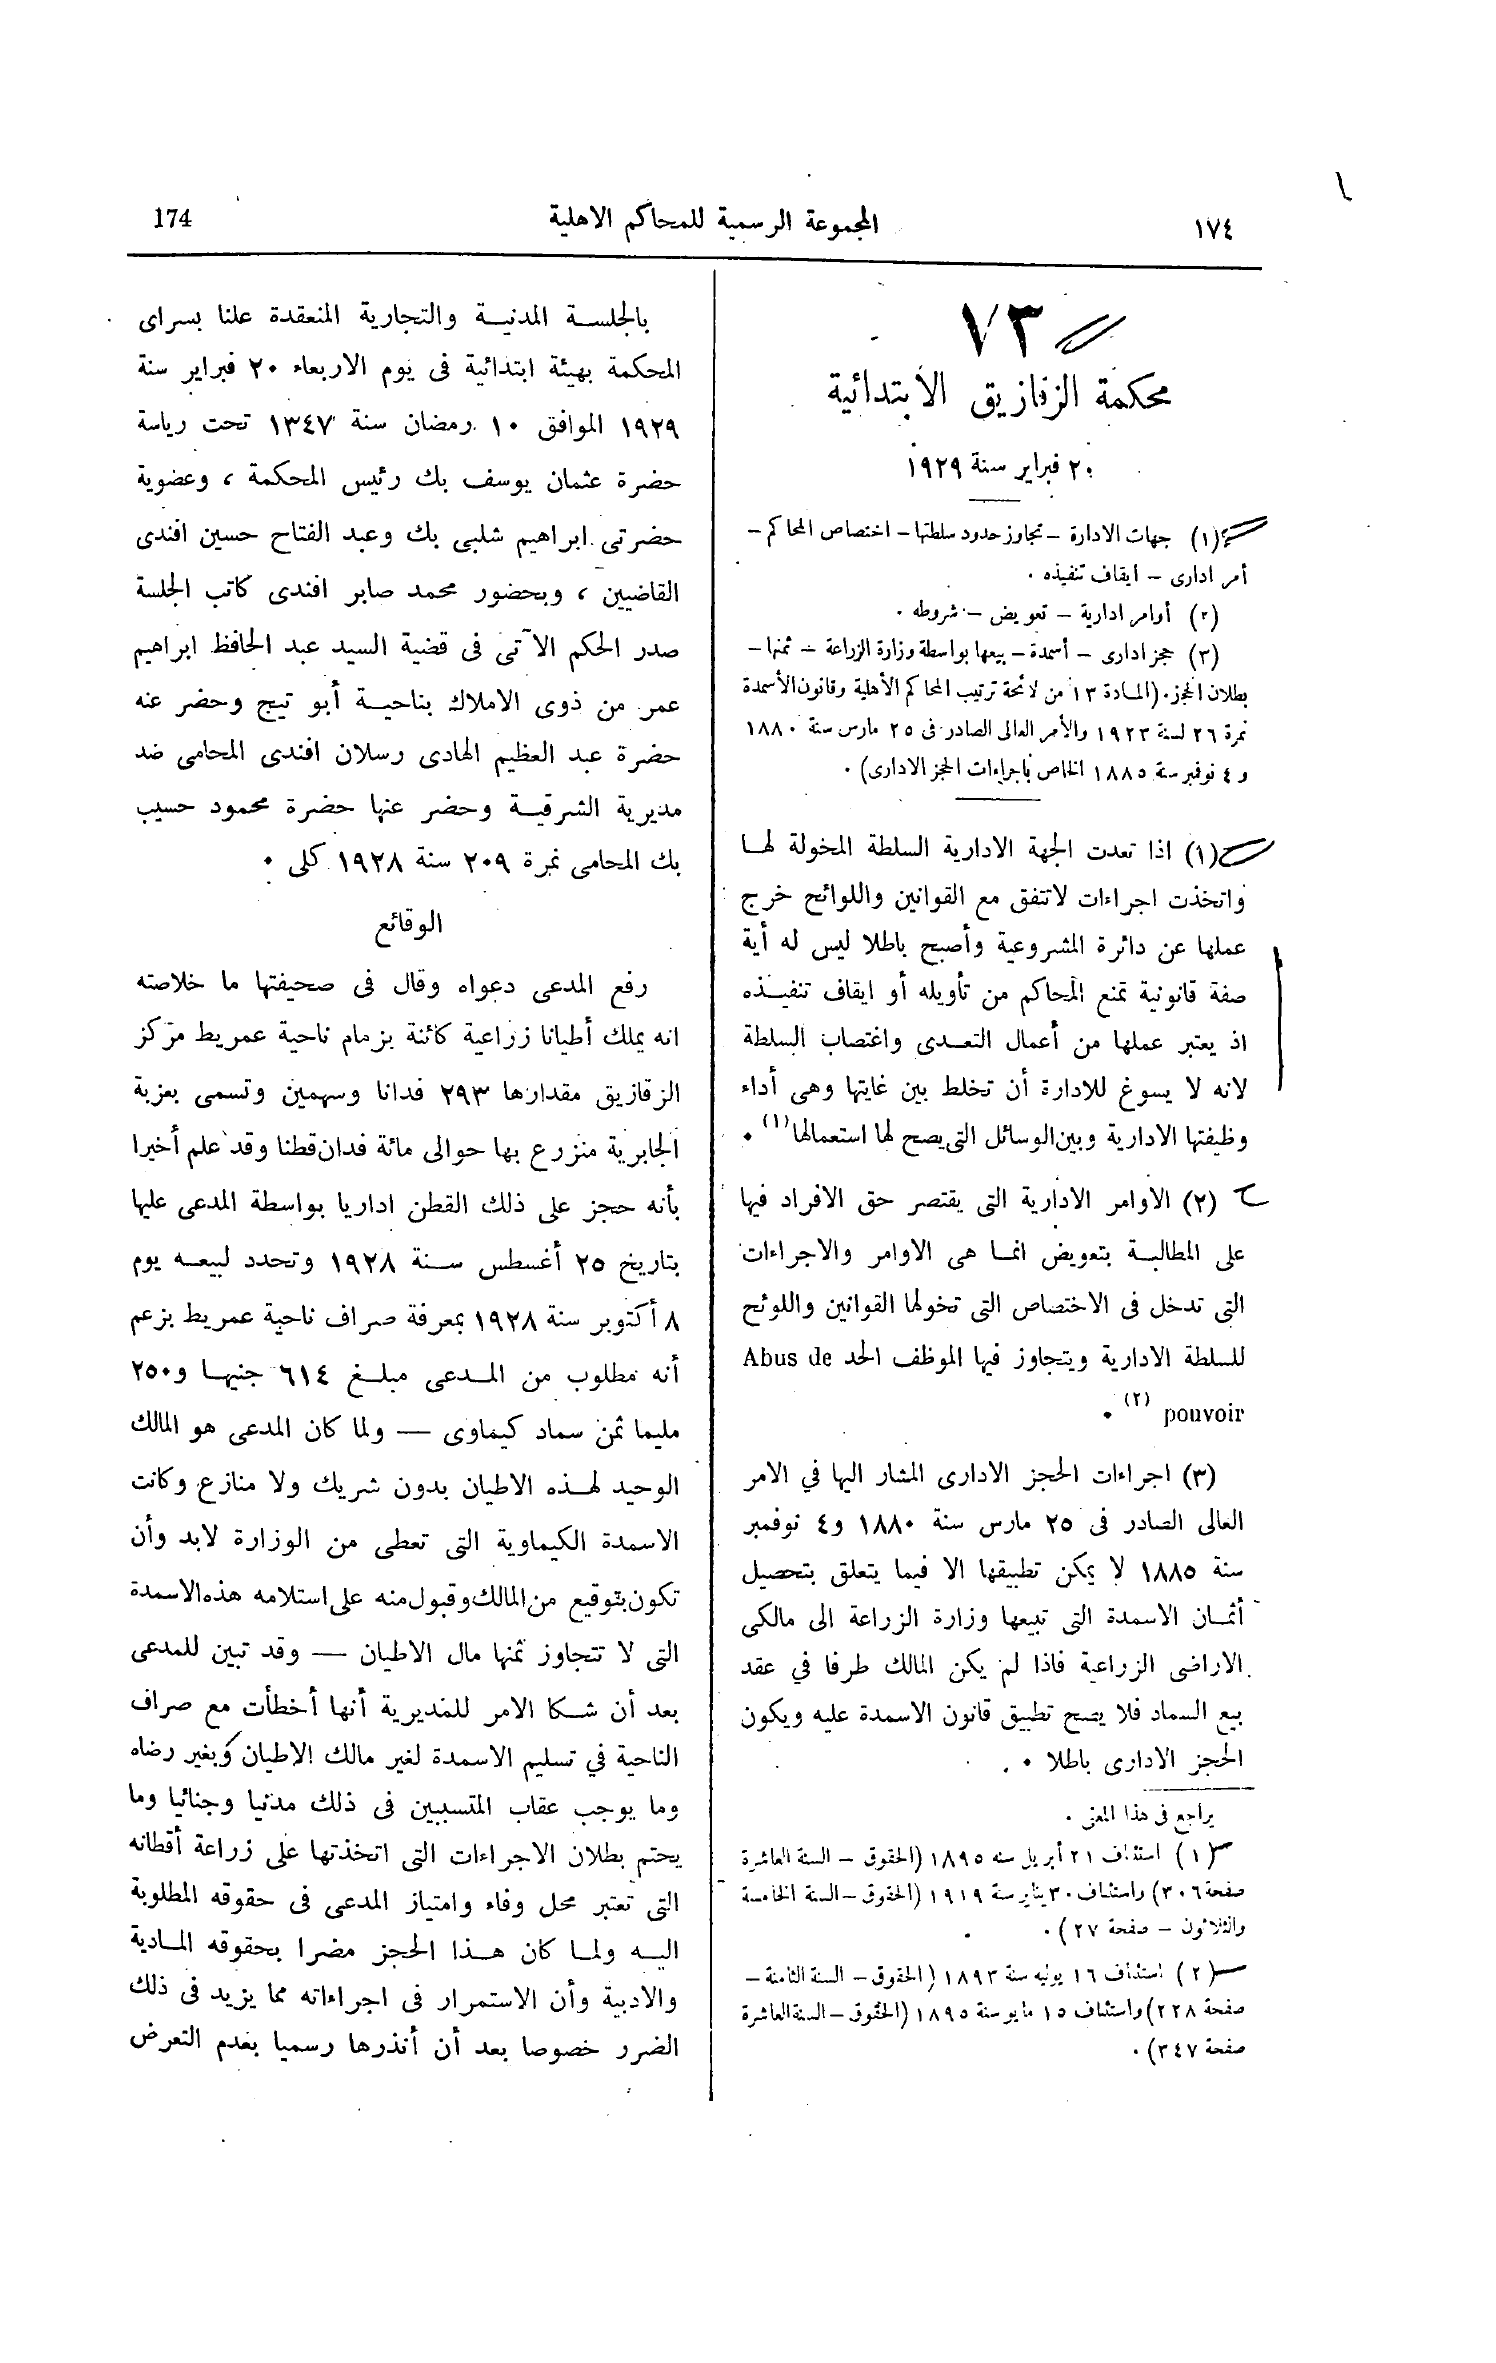 ١٧٤
المجموعة الرسمية للمحاكم الاهلية
174
٧٣
محكمة الزقازيق الابتدائية
٢٠ فبراير سنة ١٩٢٩
(١) جهات الادارة – تجاوز حدود سلطتها – اختصاص المحاكم –
أمر ادارى – ايقاف تنفيذه .
(٢) أوامر ادارية – تعويض – شروطه .
(٣) حجز ادارى – أسمدة – بيعها بواسطة وزارة الزراعة – ثمنها –
بطلان الحجز . (المادة ١٣ من لائحة ترتيب المحاكم الأهلية وقانون الأسمدة
نمرة ٢٦ لسنة ١٩٢٣ والأمر العالى الصادر فى ٢٥ مارس سنة ١٨٨٠
و ٤ نوفمبر سنة ١٨٨٥ الخاص باجراءات الحجز الادارى) .
(١) اذا تعدت الجهة الادارية السلطة المخولة لهـا
واتخذت اجراءات لاتتفق مع القوانين واللوائح خرج
عملها عن دائرة المشروعية وأصبح باطلا ليس له أية
صفة قانونية تمنع المحاكم من تأويله أو ايقاف تنفيـذه
اذ يعتبر عملها من أعمال التعـدى واغتصاب السلطة
لانه لا يسوغ للادارة أن تخلط بين غايتها وهى أداء
وظيفتها الادارية وبين الوسائل التى يصح لها استعمالها (١) .
(٢) الاوامر الادارية التى يقتصر حق الافراد فيها
على المطالبـة بتعويض انمـا هى الاوامر والاجراءات
التى تدخل فى الاختصاص التى تخولها القوانين واللوئح
للسلطة الادارية ويتجاوز فيها الموظف الحد Abus de
pouvoir (٢) .
(٣) اجراءات الحجز الادارى المشار اليها في الامر
العالى الصادر فى ٢٥ مارس سنة ١٨٨٠ و٤ نوفمبر
سنة ١٨٨٥ لا يمكن تطبيقها الا فيما يتعلق بتحصيل
أثمـان الاسمدة التى تبيعها وزارة الزراعة الى مالكى
الاراضى الزراعية فاذا لم يكن المالك طرفا في عقد
بيع السماد فلا يصح تطبيق قانون الاسمدة عليه ويكون
الحجز الادارى باطلا .
يراجع فى هذا المعنى .
(١) استئناف ٢١ أبريل سنه ١٨٩٥ (الحقوق – السنة العاشرة
صفحة ٣٠٦) واستئناف ٣٠ يناير سنة ١٩١٩ (الحقوق – السنة الخامسة
والثلاثون – صفحة ٢٧) .
(٢) استئناف ١٦ يونيه سنة ١٨٩٣ (الحقوق – السنة الثامنة –
صفحة ٢٢٨) واستئناف ١٥ مايو سنة ١٨٩٥ (الحقوق – السنة العاشرة
صفحة ٣٤٧) .
بالجلسـة المدنيـة والتجارية المنعقدة علنا بسراى
المحكمة بهيئة ابتدائية فى يوم الاربعاء ٢٠ فبراير سنة
١٩٢٩ الموافق ١٠ رمضان سنة ١٣٤٧ تحت رياسة
حضرة عثمان يوسف بك رئيس المحكمة ، وعضوية
حضرتى ابراهيم شلبى بك وعبد الفتاح حسين افندى
القاضيين ، وبحضور محمد صابر افندى كاتب الجلسة
صدر الحكم الآتى فى قضية السيد عبد الحافظ ابراهيم
عمر من ذوى الاملاك بناحيـة أبو تيج وحضر عنه
حضرة عبد العظيم الهادى رسلان افندى المحامى ضد
مديرية الشرقيـة وحضر عنها حضرة محمود حسيب
بك المحامى نمرة ٢٠٩ سنة ١٩٢٨ كلى .
الوقائع
رفع المدعى دعواه وقال فى صحيفتها ما خلاصته
انه يملك أطيانا زراعية كائنة بزمام ناحية عمريط مركز
الزقازيق مقدارها ٢٩٣ فدانا وسهمين وتسمى بعزبة
الجابرية منزرع بها حوالى مائة فدان قطنا وقد علم أخيرا
بأنه حجز على ذلك القطن اداريا بواسطة المدعى عليها
بتاريخ ٢٥ أغسطس سـنة ١٩٢٨ وتحدد لبيعـه يوم
٨ أكتوبر سنة ١٩٢٨ بمعرفة صراف ناحية عمريط بزعم
أنه مطلوب من المـدعى مبلـغ ٦١٤ جنيهـا و٢٥٠
مليما ثمن سماد كيماوى — ولما كان المدعى هو المالك
الوحيد لهـذه الاطيان بدون شريك ولا منازع وكانت
الاسمدة الكيماوية التى تعطى من الوزارة لابد وأن
تكون بتوقيع من المالك وقبول منه على استلامه هذه الاسمدة
التى لا تتجاوز ثمنها مال الاطيان — وقد تبين للمدعى
بعد أن شـكا الامر للمديرية أنها أخطأت مع صراف
الناحية في تسليم الاسمدة لغير مالك الاطيان وبغير رضاه
وما يوجب عقاب المتسببين فى ذلك مدنيا وجنائيا وما
يحتم بطلان الاجراءات التى اتخذتها على زراعة أقطانه
التى تعتبر محل وفاء وامتياز المدعى فى حقوقه المطلوبة
اليـه ولمـا كان هـذا الحجز مضرا بحقوقه المـادية
والادبية وأن الاستمرار فى اجراءاته مما يزيد فى ذلك
الضرر خصوصا بعد أن أنذرها رسميا بعدم التعرض